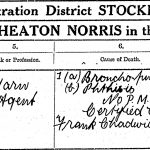 ration District STOCK
HEATON NORRIS in th
5.
6.
k or Profession.
Cause of Death.
Yarn
Agent
1(a) Bronchopne
(b) Phthisis
No P.M.
Certified
Frank Chadwic